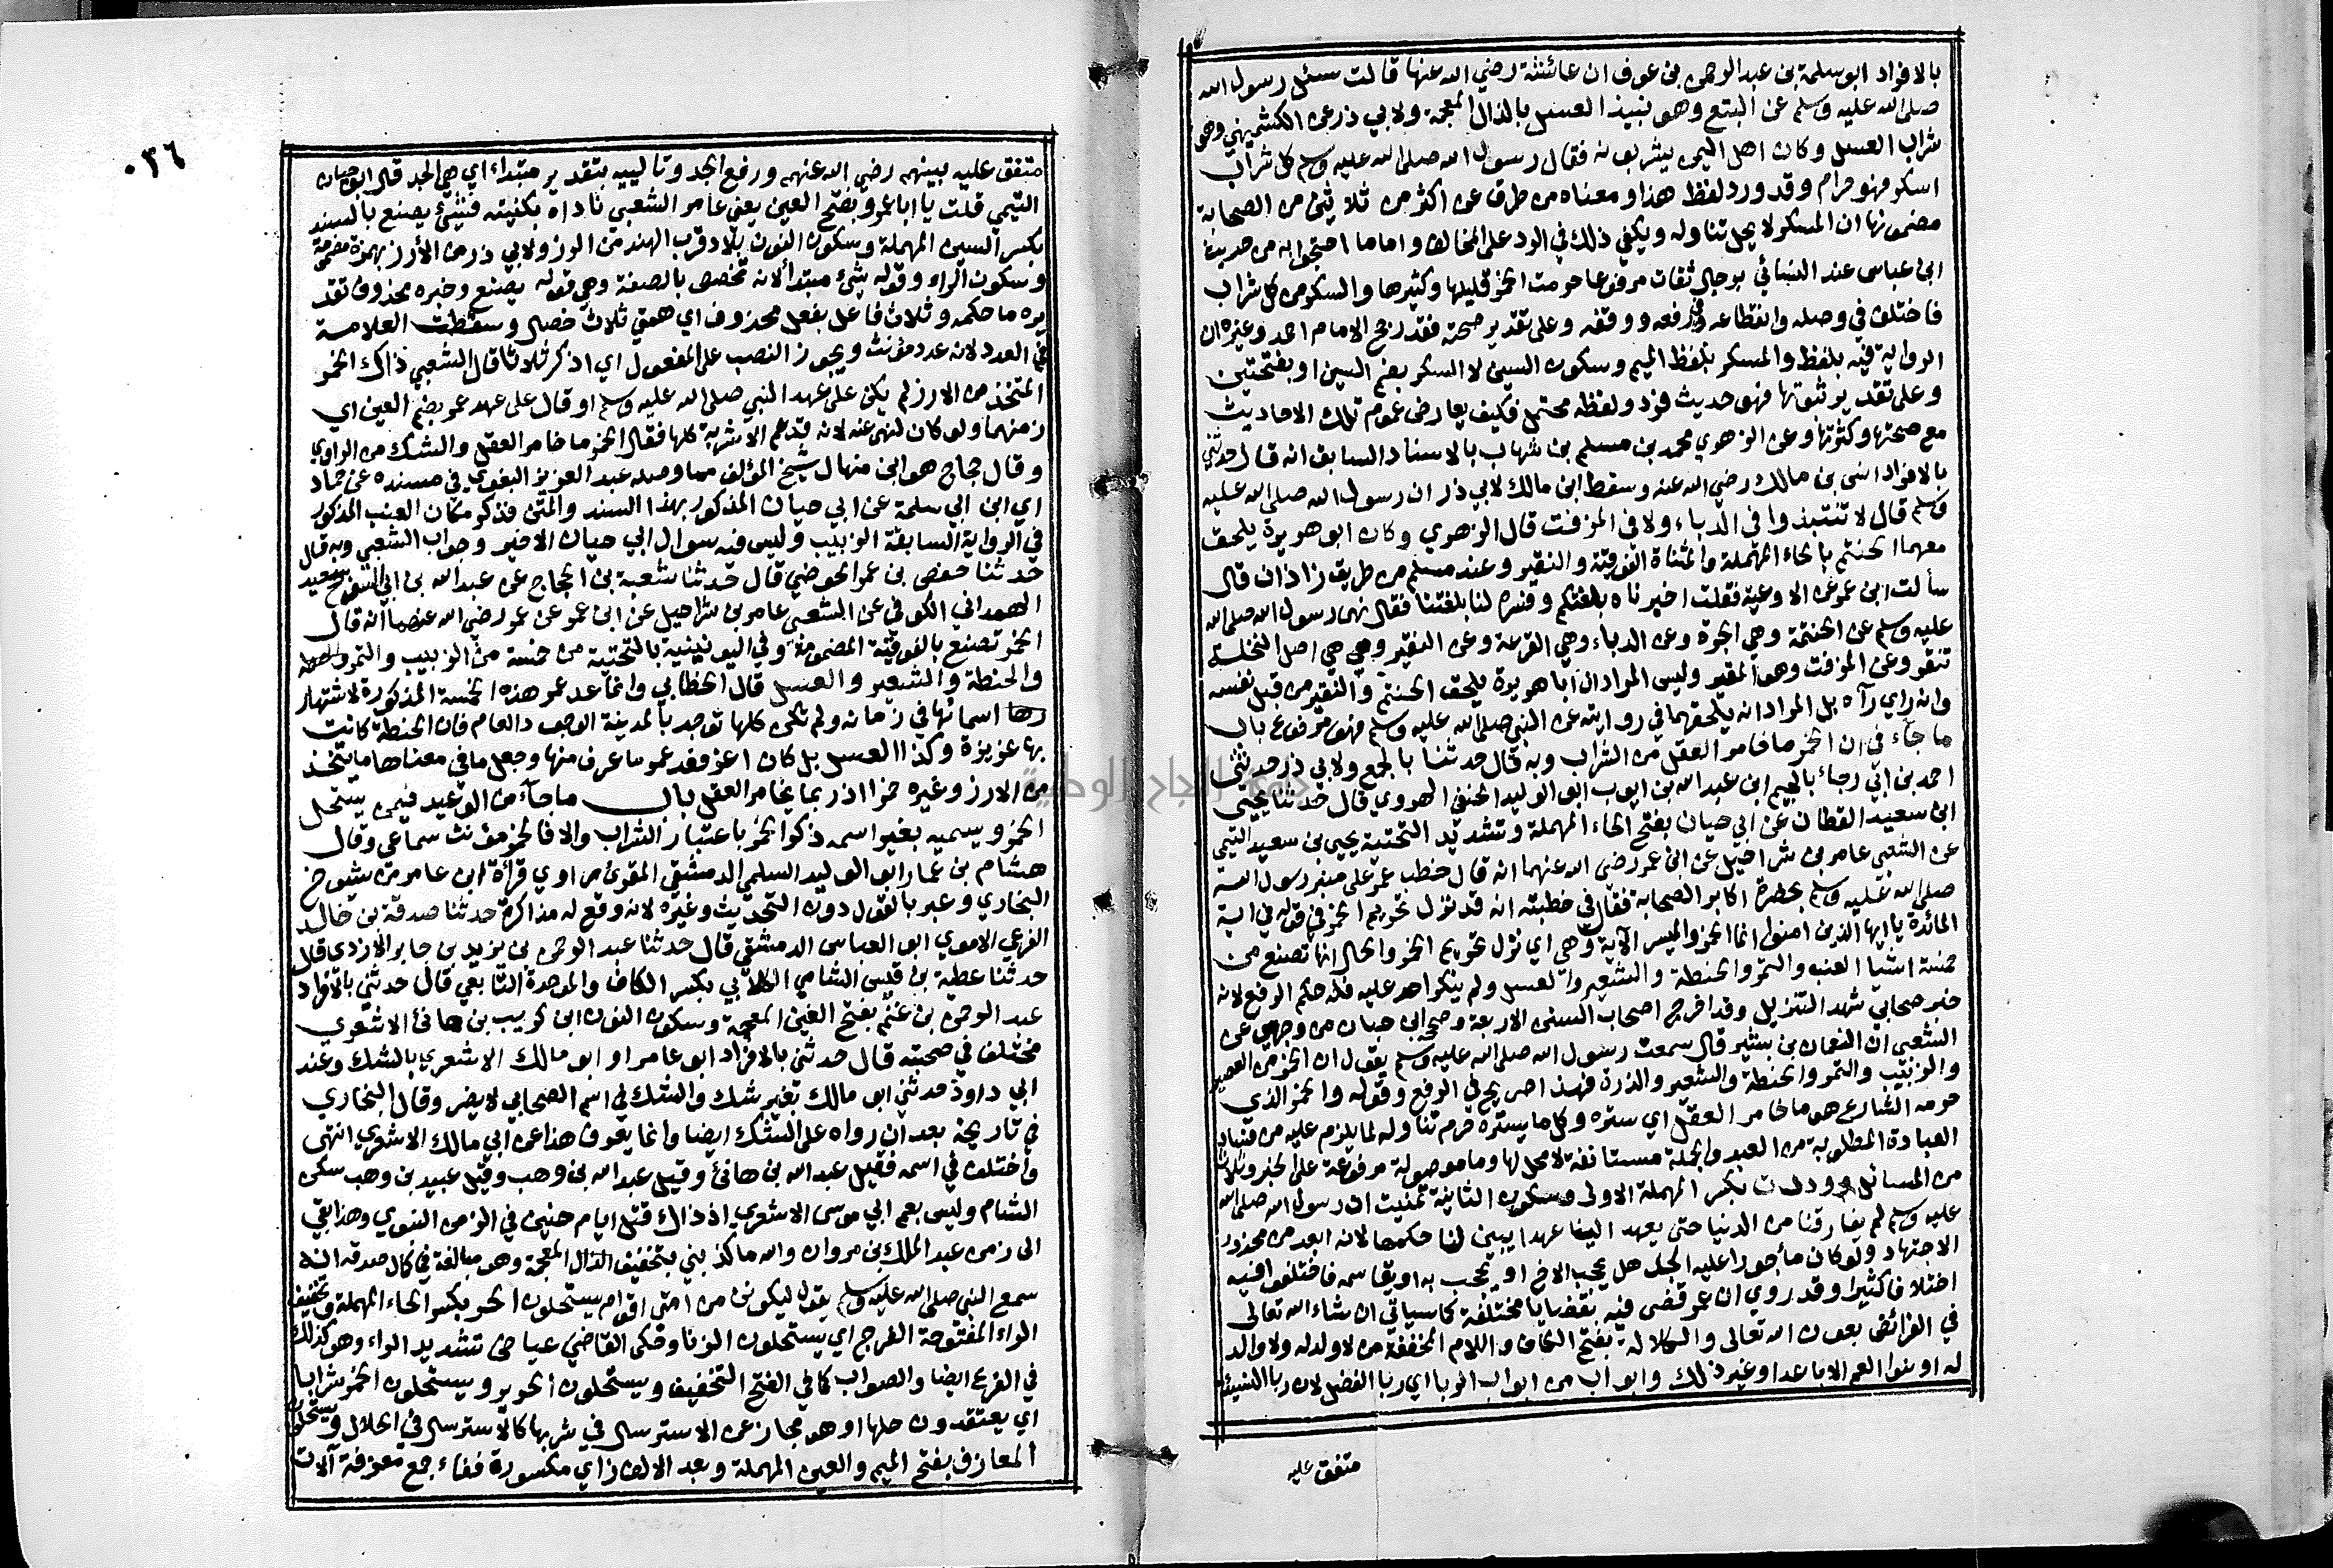 بالافراد ابو سلمة بن عبد الرحمن بن عوف ان عائشة رضي الله عنها قالت سئل رسول الله
صلى الله عليه وسلم عن البتع وهو نبيذ العسل بالذال المعجمة ولابي ذر عن الكشميهني وهو
شراب العسل وكان اهل اليمن يشربونه فقال رسول الله صلى الله عليه وسلم كل شراب
اسكر فهو حرام وقد ورد لفظ هذا ومعناه من طرق عن اكثر من ثلاثين من الصحابة
مضمونها ان المسكر لا يحل تناوله ويكفي ذلك في الرد على المخالف واما ما احتجوا به من حديث
ابن عباس عند النسائي برجال ثقات مرفوعا حرمت الخمر قليلها وكثيرها والسكر من كل شراب
فاختلف في وصله وانقطاعه وفي رفعه ووقفه وعلى تقدير صحته فقد رجح الامام احمد وغيره ان
الرواية فيه بلفظ والمسكر بلفظ الميم وسكون السين لا السكر بضم السين او بفتحتين
وعلى تقدير ثبوتها فهو حديث فرد ولفظه محتمل فكيف يعارض عموم تلك الاحاديث
مع صحتها وكثرتها وعن الزهري محمد بن مسلم بن شهاب بالاسناد السابق انه قال حدثني
بالافراد انس بن مالك رضي الله عنه وسقط ابن مالك لابي ذر ان رسول الله صلى الله عليه
وسلم قال لا تنتبذوا في الدباء ولا في المزفت قال الزهري وكان ابو هريرة يلحق
معهما الحنتم بالحاء المهملة والمثناة الفوقية والنقير وعند مسلم من طريق زاذان قال
سألت ابن عمر عن الاوعية فقلت اخبرناه بلغتكم وفسره لنا بلغتنا فقال نهى رسول الله صلى الله
عليه وسلم عن الحنتمة وهي الجرة وعن الدباء وهي القرعة وعن النقير وهي هي اصل النخلة
تنقر وعن المزفت وهو المقير وليس المراد ان ابا هريرة يلحق الحنتم والنقير من قبل نفسه
وانه راي رآه بل المراد انه يلحقهما في روايته عن النبي صلى الله عليه وسلم فهو مرفوع باب
ما جاء في ان الخمر ما خامر العقل من الشراب وبه قال حدثنا بالجمع ولابي ذر حدثني
احمد بن ابي رجاء بالجيم ابن عبد الله بن ايوب ابو الوليد الحنفي الهروي قال حدثنا يحيى
ابن سعيد القطان عن ابي حيان بفتح الحاء المهملة وتشديد التحتية يحيى بن سعيد التيمي
عن الشعبي عامر بن شراحيل عن ابن عمر رضي الله عنهما انه قال خطب عمر على منبر رسول الله
صلى الله عليه وسلم بحضرة اكابر الصحابة فقال في خطبته انه قد نزل تحريم الخمر في قوله في اية
المائدة يا ايها الذين امنوا انما الخمر والميسر الآية وهي اي نزل تحريم الخمر والحال انها تصنع من
خمسة اشيا العنب والتمر والحنطة والشعير والعسل ولم ينكر احد عليه فله حكم الرفع لانه
خبر صحابي شهد التنزيل وقد اخرج اصحاب السنن الاربعة وصححه ابن حبان من وجهين عن
الشعبي ان النعمان بن بشير قال سمعت رسول الله صلى الله عليه وسلم يقول ان الخمر من العصير
والزبيب والتمر والحنطة والشعير والذرة فهذا صريح في الرفع وقوله والخمر الذي
حرمه الشارع هو ما خامر العقل اي ستره وكل ما يستره حرم تناوله لما يلزم عليه من فساد
العبادة المطلوبة من العبد والجملة مستانفة لا محل لها وما موصولة مرفوعة على الخبر وثلاث
من المسائل وددت بكسر المهملة الاولى وسكون الثانية تمنيت ان رسول الله صلى الله
عليه وسلم لم يفارقنا من الدنيا حتى يعهد الينا عهدا يبين لنا حكمها لانه ابعد من محذور
الاجتهاد ولو كان ماجورا عليه الجد هل يحجب الاخ او يحجب به او يقاسمه فاختلفوا فيه
اختلافا كثيرا وقد روي ان عمر قضى فيه بقضايا مختلفة كما سياتي ان شاء الله تعالى
في الفرائض بعون الله تعالى والكلالة بفتح الكاف واللام المخففة من لا ولد له ولا والد
له او بنوا العم الاباعد او غير ذلك وابواب من ابواب الربا اي ربا الفضل لان ربا النسيئة
متفق عليه
٠٣٦
متفق عليه بينهم رضي الله عنهم ورفع الجد وتالييه بتقدير مبتداء اي هي الجد قال ابو حيان
التيمي قلت يا ابا عمرو بفتح العين يعني عامر الشعبي ناداه بكنيته فشيئ يصنع بالسند
بكسر السين المهملة وسكون النون بلاد قرب الهند من الرز ولابي ذر من الأرز بهمزة مضمومة
وسكون الراء وقوله شئ مبتدأ لانه تخصص بالصفة وهي قوله يصنع وخبره محذوف تقد
يره ما حكمه وثلاث فاعل بفعل محذوف اي همتي ثلاث خصال وسقطت العلامة
في العدد لانه عدد مؤنث ويجوز النصب على المفعول اي اذكر ثلاثا قال الشعبي ذاك الخمر
المتخذ من الارز لم يكن على عهد النبي صلى الله عليه وسلم او قال على عهد عمر بضم العين اي
زمنهما ولو كان لنهى عنه لانه قد عم الاشربة كلها فقال الخمر ما خامر العقل والشك من الراوي
وقال حجاج هو ابن منهال شيخ المؤلف مما وصله عبد العزيز البغوي في مسنده عن حماد
اي ابن ابي سلمة عن ابي حيان المذكور بهذا السند والمتن فذكر مكان العنب المذكور
في الرواية السابقة الزبيب وليس فيه سوال ابي حيان الاخير وجواب الشعبي وبه قال
حدثنا حفص بن عمر الحوضي قال حدثنا شعبة بن الحجاج عن عبد الله بن ابي السفر سعيد
الهمداني الكوفي عن الشعبي عامر بن شراحيل عن ابن عمر عن عمر رضي الله عنهما انه قال
الخمر تصنع بالفوقية المضمومة وفي اليونينية بالتحتية من خمسة من الزبيب والتمر
والحنطة والشعير والعسل قال الخطابي وانما عد عمر هذه الخمسة المذكورة لاشتهار
اسمائها في زمانه ولم تكن كلها توجد بالمدينة الوجود العام فان الحنطة كانت
بها عزيزة وكذا العسل بل كان اعز فعد عمر ما عرف منها وجعل ما في معناها مما يتخذ
من الارز وغيره خمرا اذ ربما يخامر العقل باب ما جآء من الوعيد فيمن يستحل
الخمر ويسميه بغير اسمه ذكر الخمر باعتبار الشراب والا فالخمر مؤنث سماعي وقال
هشام بن عمار ابو الوليد السلمي الدمشقي المقرئ راوي قرأة ابن عامر من شيوخ
البخاري وعبر بالقول دون التحديث وغيره لانه وقع له مذاكرة حدثنا صدقة بن خالد
القرعي الاموي ابو العباس الدمشقي قال حدثنا عبد الرحمن بن يزيد بن جابر الازدي قال
حدثنا عطية بن قيس الشامي الكلابي بكسر الكاف والموحدة التابعي قال حدثني بالافراد
عبد الرحمن بن غنم بفتح الغين المعجمة وسكون النون ابن كريب بن هانئ الاشعري
مختلف في صحبته قال حدثني بالافراد ابو عامر او ابو مالك الاشعري بالشك وعند
ابي داوذ حدثني ابو مالك بغير شك والشك في اسم الصحابي لا يضر وقال البخاري
في تاريخه بعد ان رواه على الشك ايضا وانما يعرف هذا عن ابي مالك الاشعري انتهى
واختلف في اسمه فقيل عبد الله بن هانئ وقيل عبد الله بن وهب وقيل عبيد بن وهب سكن
الشام وليس بعم ابي موسى الاشعري اذ ذاك قتل ايام حنين في الزمن النبوي وهذا بقي
الى زمن عبد الملك بن مروان والله ما كذبني بتخفيف الذال المعجمة وهو مبالغة في كمال صدقه انه
سمع النبي صلى الله عليه وسلم يقول ليكونن من امتي اقوام يستحلون الحر بكسر الحاء المهملة وتخفيف
الراء المفتوحة الفرج اي يستحلون الزنا وحكى القاضي عياض تشديد الراء وهو كذلك
في الفرع ايضا والصواب كما في الفتح التخفيف ويستحلون الحرير ويستحلون الخمر شرابا
اي يعتقدون حلها او هو مجاز عن الاسترسال في شربها كالاسترسال في الحلال ويستحلون
المعازف بفتح الميم والعين المهملة وبعد الالف زاي مكسورة ففاء جمع معزفة آلات